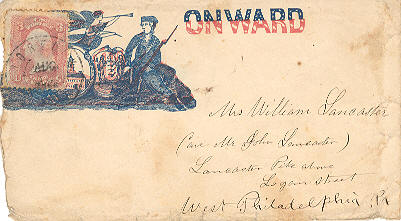 ONWARD
AUG
Mrs William Lancaster
(Care Mr John Lancaster)
Lancaster Pike above
Logan street
West Philadelphia Pa